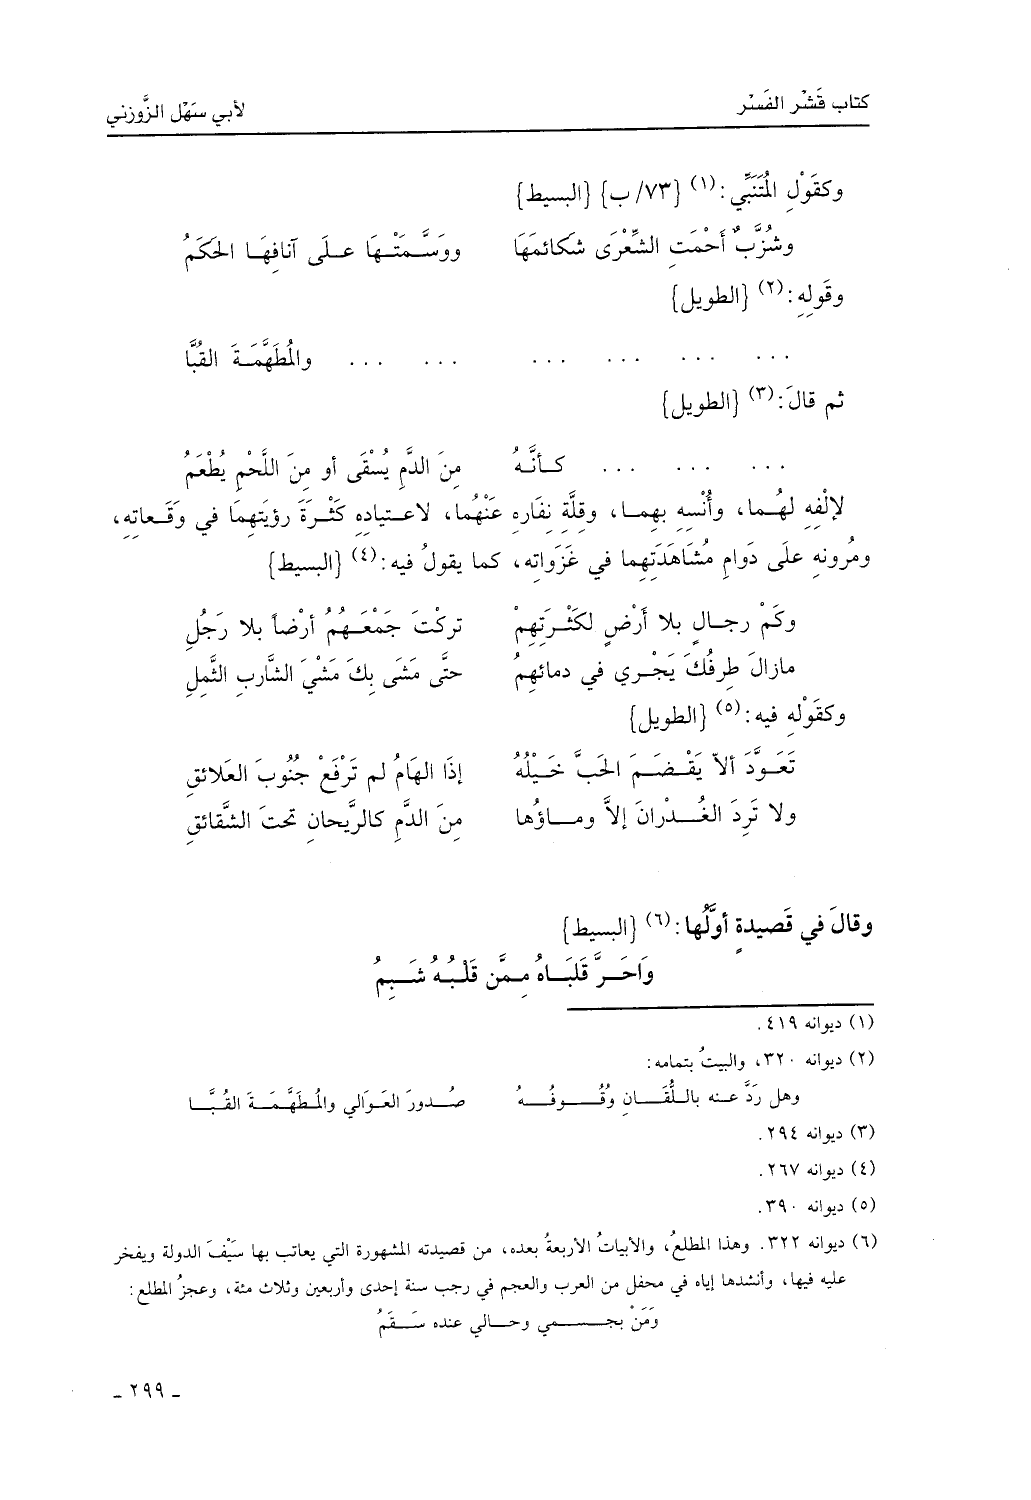 كتاب قَشْر الفَسْر لأبي سَهْل الزَّوزني
وكقَوْلِ المُتَنَبِّي:(١) [٧٣/ ب] {البسيط}
وشُزَّبٌ أَحْمَتِ الشِّعْرَى شكائمَهَا ووَسَّمَتْـهَا علَى آنافِهَا الحَكَمُ
وقَولِهِ:(٢) {الطويل}
... ... ... ... ... ... والمُطَهَّمَةَ القُبَّا
ثم قالَ:(٣) {الطويل}
... ... ... كأنَّهُ مِنَ الدَّمِ يُسْقَى أو مِنَ اللَّحْمِ يُطْعَمُ
لإلْفِهِ لهُما، وأُنْسِهِ بهِما، وقلَّةِ نفَارِه عَنْهُما، لاعتيادِهِ كَثْرَةَ رؤيَتِهِمَا في وَقَعاتِهِ،
ومُرونهِ علَى دَوامِ مُشَاهَدَتِهِما في غَزَواتِه، كما يقولُ فيه:(٤) {البسيط}
وكَمْ رجالٍ بلا أَرْضٍ لكَثْرَتِهِمْ تركْتَ جَمْعَهُمُ أرْضاً بلا رَجُلِ
مازالَ طِرفُكَ يَجْري في دمائهِمُ حتَّى مَشَى بِكَ مَشْيَ الشَّارِبِ الثَّمِلِ
وكقَوْلِه فيه:(٥) {الطويل}
تَعَوَّدَ ألاّ يَقْضَمَ الحَبَّ خَيْلُهُ إذَا الهَامُ لم تَرْفَعْ جُنُوبَ العَلائقِ
ولا تَرِدَ الغُدْرانَ إلاَّ وماؤُها مِنَ الدَّمِ كالرَّيحانِ تحتَ الشَّقائقِ
وقالَ في قَصيدةٍ أوَّلُها:(٦) {البسيط}
وَاحَرَّ قَلبَاهُ مِمَّن قَلْبُهُ شَبِمُ
(١) ديوانه ٤١٩.
(٢) ديوانه ٣٢٠، والبيتُ بتمامه:
وهل رَدَّ عنه باللُّقَانِ وُقُوفُهُ صُدورَ العَوَالي والمُطَهَّمَةَ القُبَّا
(٣) ديوانه ٢٩٤.
(٤) ديوانه ٢٦٧.
(٥) ديوانه ٣٩٠.
(٦) ديوانه ٣٢٢. وهذا المطلعُ، والأبياتُ الأربعةُ بعده، من قصيدته المشهورة التي يعاتب بها سَيْفَ الدولة ويفخر
عليه فيها، وأنشدها إياه في محفل من العرب والعجم في رجب سنة إحدى وأربعين وثلاث مئة، وعجزُ المطلع:
وَمَنْ بجسمي وحالي عنده سَقَمُ
ـ ٢٩٩ ـ